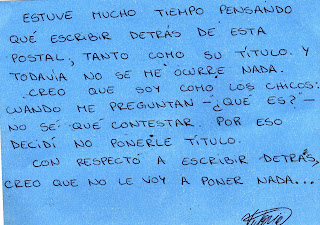 ESTUVE MUCHO TIEMPO PENSANDO
QUÉ ESCRIBIR DETRÁS DE ESTA
POSTAL, TANTO COMO SU TÍTULO. Y
TODAVÍA NO SE ME OCURRE NADA.
CREO QUE SOY COMO LOS CHICOS:
CUANDO ME PREGUNTAN -"¿QUÉ ES?"-
NO SÉ QUÉ CONTESTAR. POR ESO
DECIDÍ NO PONERLE TÍTULO.
CON RESPECTO A ESCRIBIR DETRÁS,
CREO QUE NO LE VOY A PONER NADA...